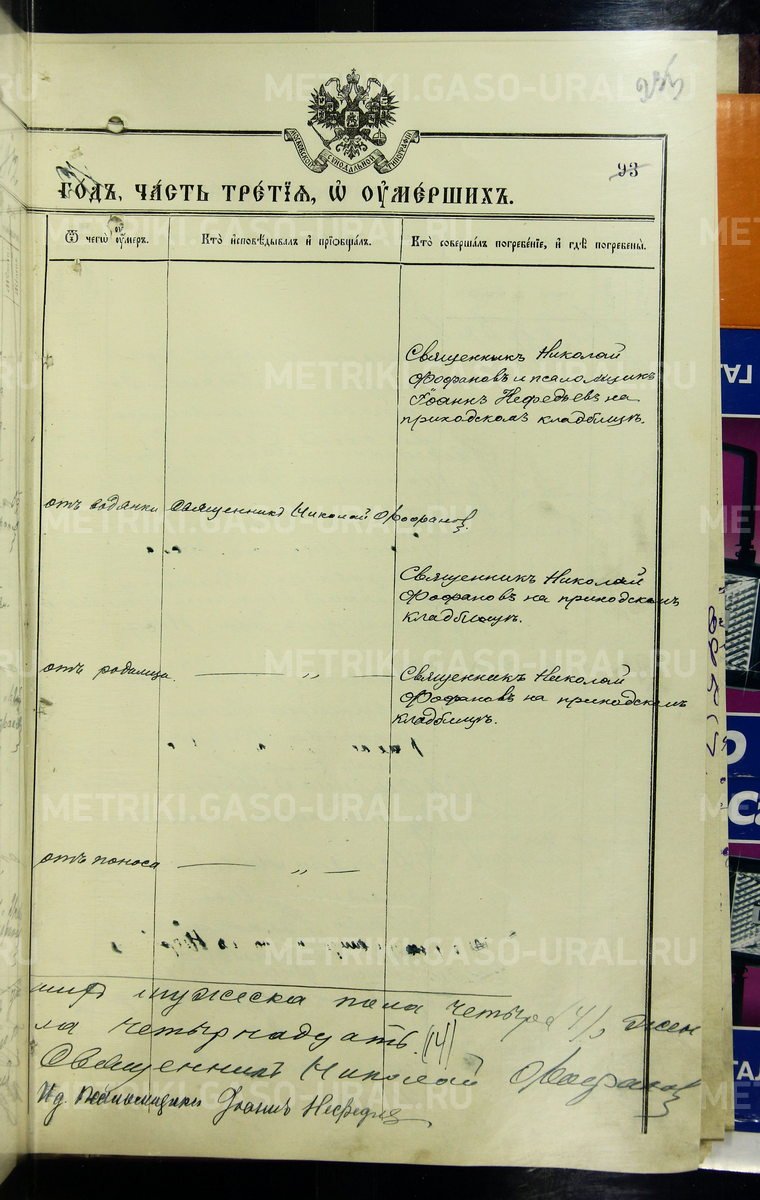 93
МОСКОВСКОЙ СѶНОДАЛЬНОЙ ТИПОГРАФІИ
ГОДЪ, ЧА́СТЬ ТРЕ́ТІѦ, Ѡ҆ ОУ҆МЕ́РШИХЪ.
Ѿ чегѡ̀ оу҆́меръ.
Кто̀ и҆сповѣ́дывалъ и҆ прїѻбща́лъ.
Кто̀ соверша́лъ погребе́нїе, и҆ гдѣ̀ погребены̀.
Священникъ Николай
Фофановъ и псаломщикъ
Іоаннъ Нефедьевъ на
приходскомъ кладбищѣ.
отъ водянки
Священникъ Николай Фофановъ.
Священникъ Николай
Фофановъ на приходскомъ
кладбищѣ.
отъ родимца
— „ —
Священникъ Николай
Фофановъ на приходскомъ
кладбищѣ.
отъ поноса
— „ —
мужеска пола четыре (4), жен
ла четырнадцать. (14)
Священникъ Николай Фофановъ
И.д. псаломщика Іоаннъ Нефедьевъ
METRIKI.GASO-URAL.RU